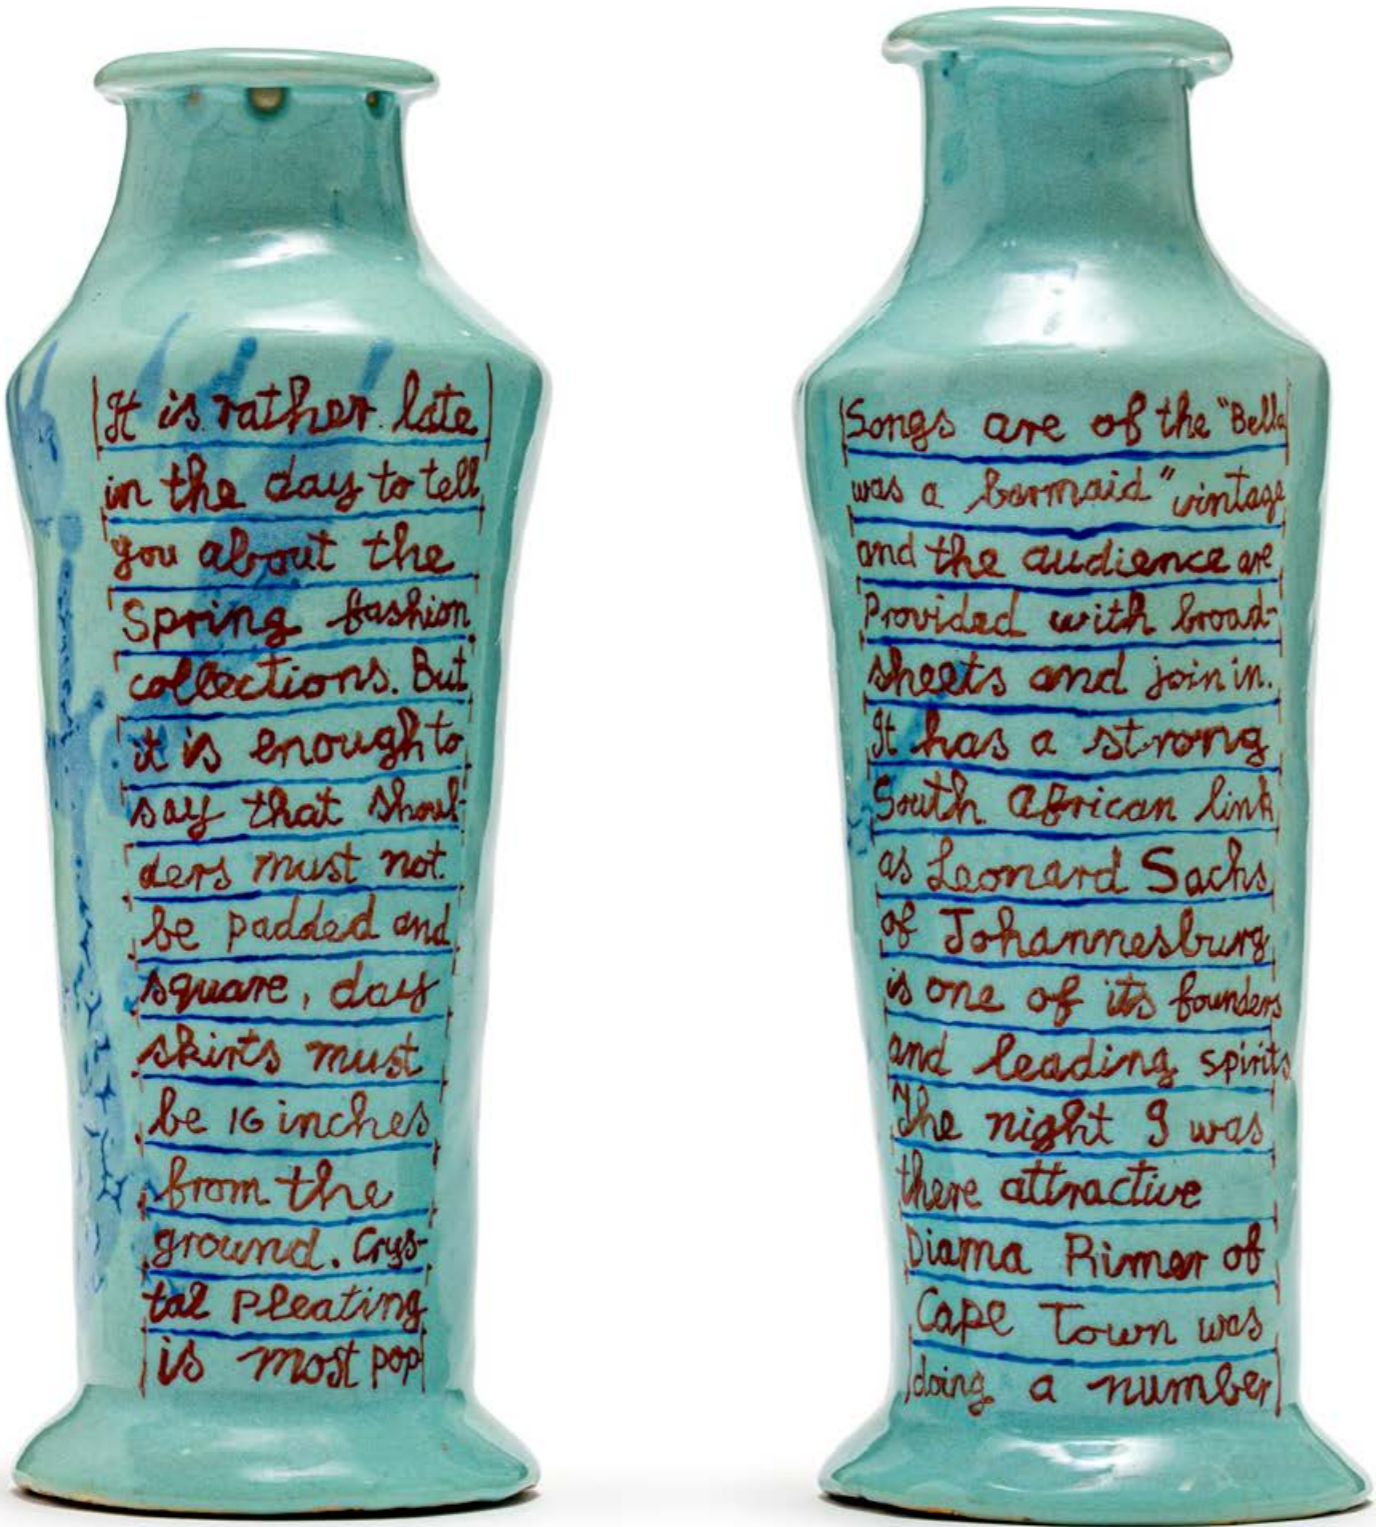 It is rather late
in the day to tell
you about the
Spring fashion
collections. But
it is enough to
say that shoul-
ders must not
be padded and
square, day
skirts must
be 16 inches
from the
ground. Crys-
tal Pleating
is most pop
Songs are of the "Bella
was a barmaid" vintage
and the audience are
Provided with broad-
sheets and join in.
It has a strong
South African link
as Leonard Sachs
of Johannesburg
is one of its founders
and leading spirits
The night I was
there attractive
Diama Rimer of
Cape Town was
doing a number